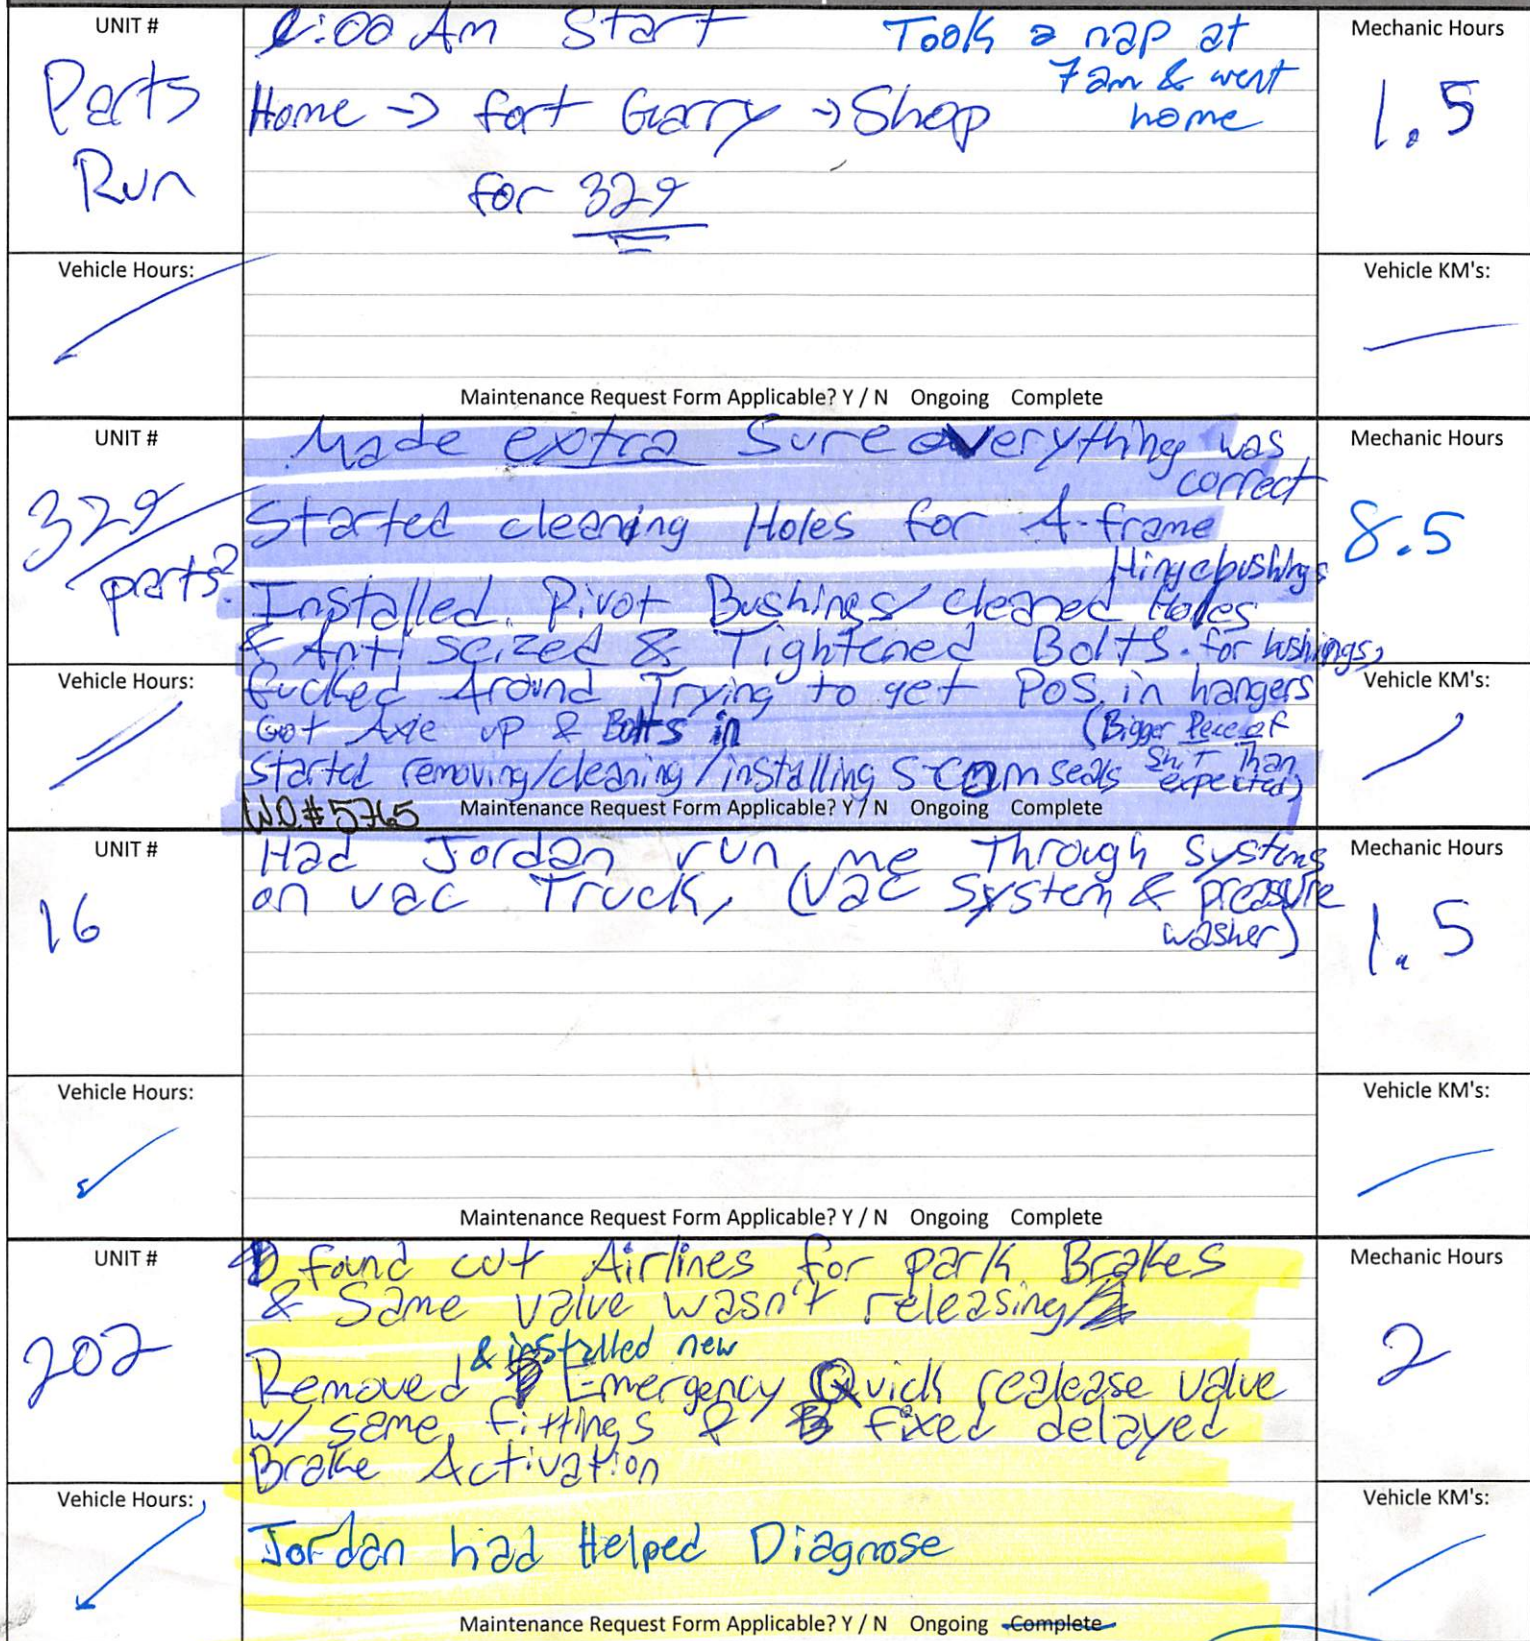 UNIT #
Parts
Run
:00 Am Start
Took a nap at
7am & went
home
Home -> fort Garry -> Shop
for 329
Mechanic Hours
1.5
Vehicle Hours:
Vehicle KM's:
Maintenance Request Form Applicable? Y / N Ongoing Complete
UNIT #
329
parts?
Made extra Sure everything was
correct
Started cleaning Holes for A-frame
Hinge bushings
Installed Pivot Bushings/cleaned Holes
& Anti seized & Tightened Bolts. for bushings,
fucked Around Trying to get POS in hangers
Got Axle up & Bolts in
(Bigger Piece of
Shit Than
expected)
Started removing/cleaning/installing S-cam seals
W.O.#5765
Mechanic Hours
8.5
Vehicle Hours:
Vehicle KM's:
Maintenance Request Form Applicable? Y / N Ongoing Complete
UNIT #
16
Had Jordan run me Through systems
on vac Truck, (Vac System & pressure
washer)
Mechanic Hours
1.5
Vehicle Hours:
Vehicle KM's:
Maintenance Request Form Applicable? Y / N Ongoing Complete
UNIT #
202
found cut Airlines for park Brakes
& Same valve wasn't releasing
& installed new
Removed Emergency Quick realease valve
w/ same fittings & fixed delayed
Brake Activation
Jordan had Helped Diagnose
Mechanic Hours
2
Vehicle Hours:
Vehicle KM's:
Maintenance Request Form Applicable? Y / N Ongoing Complete